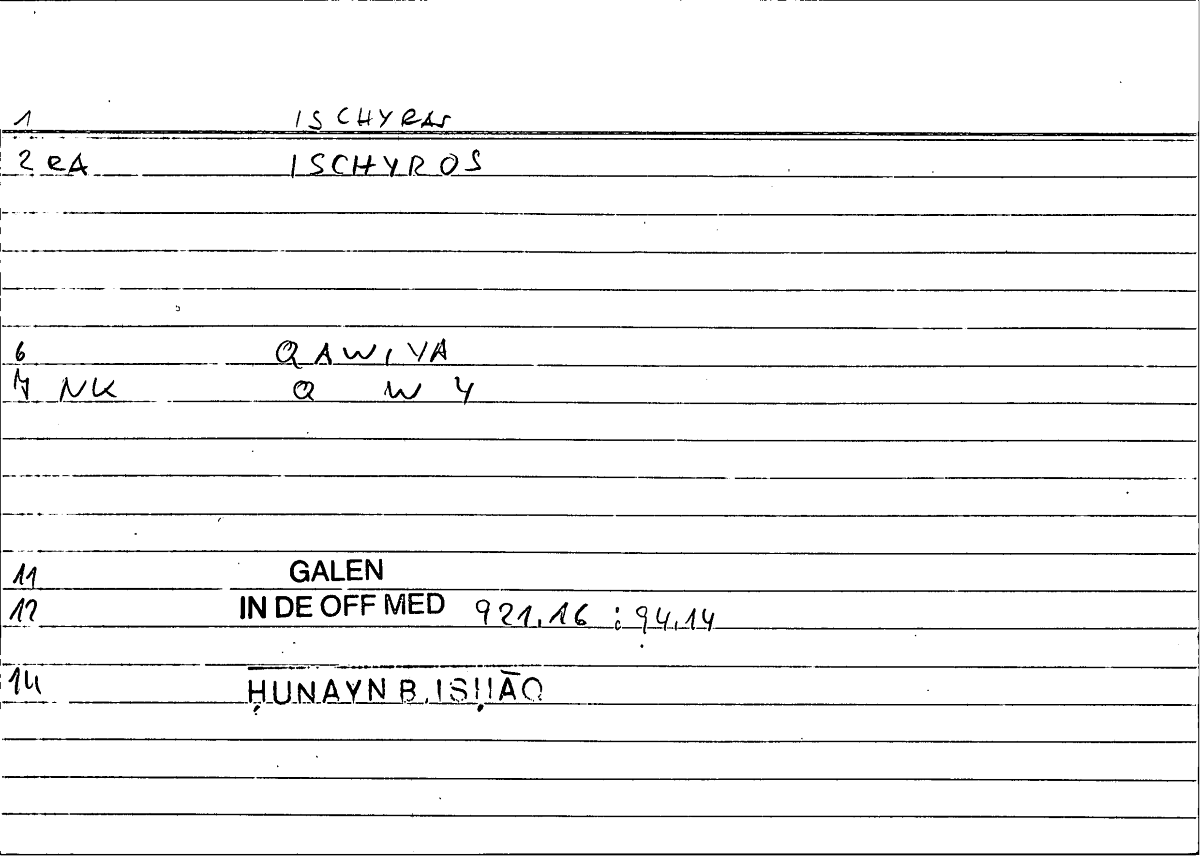 1 ISCHYRAS
2 RA ISCHYROS
6 QAWIYA
7 NK Q W Y
11 GALEN
12 IN DE OFF MED 921.16 : 94.14
14 ḤUNAYN B. ISḤĀQ